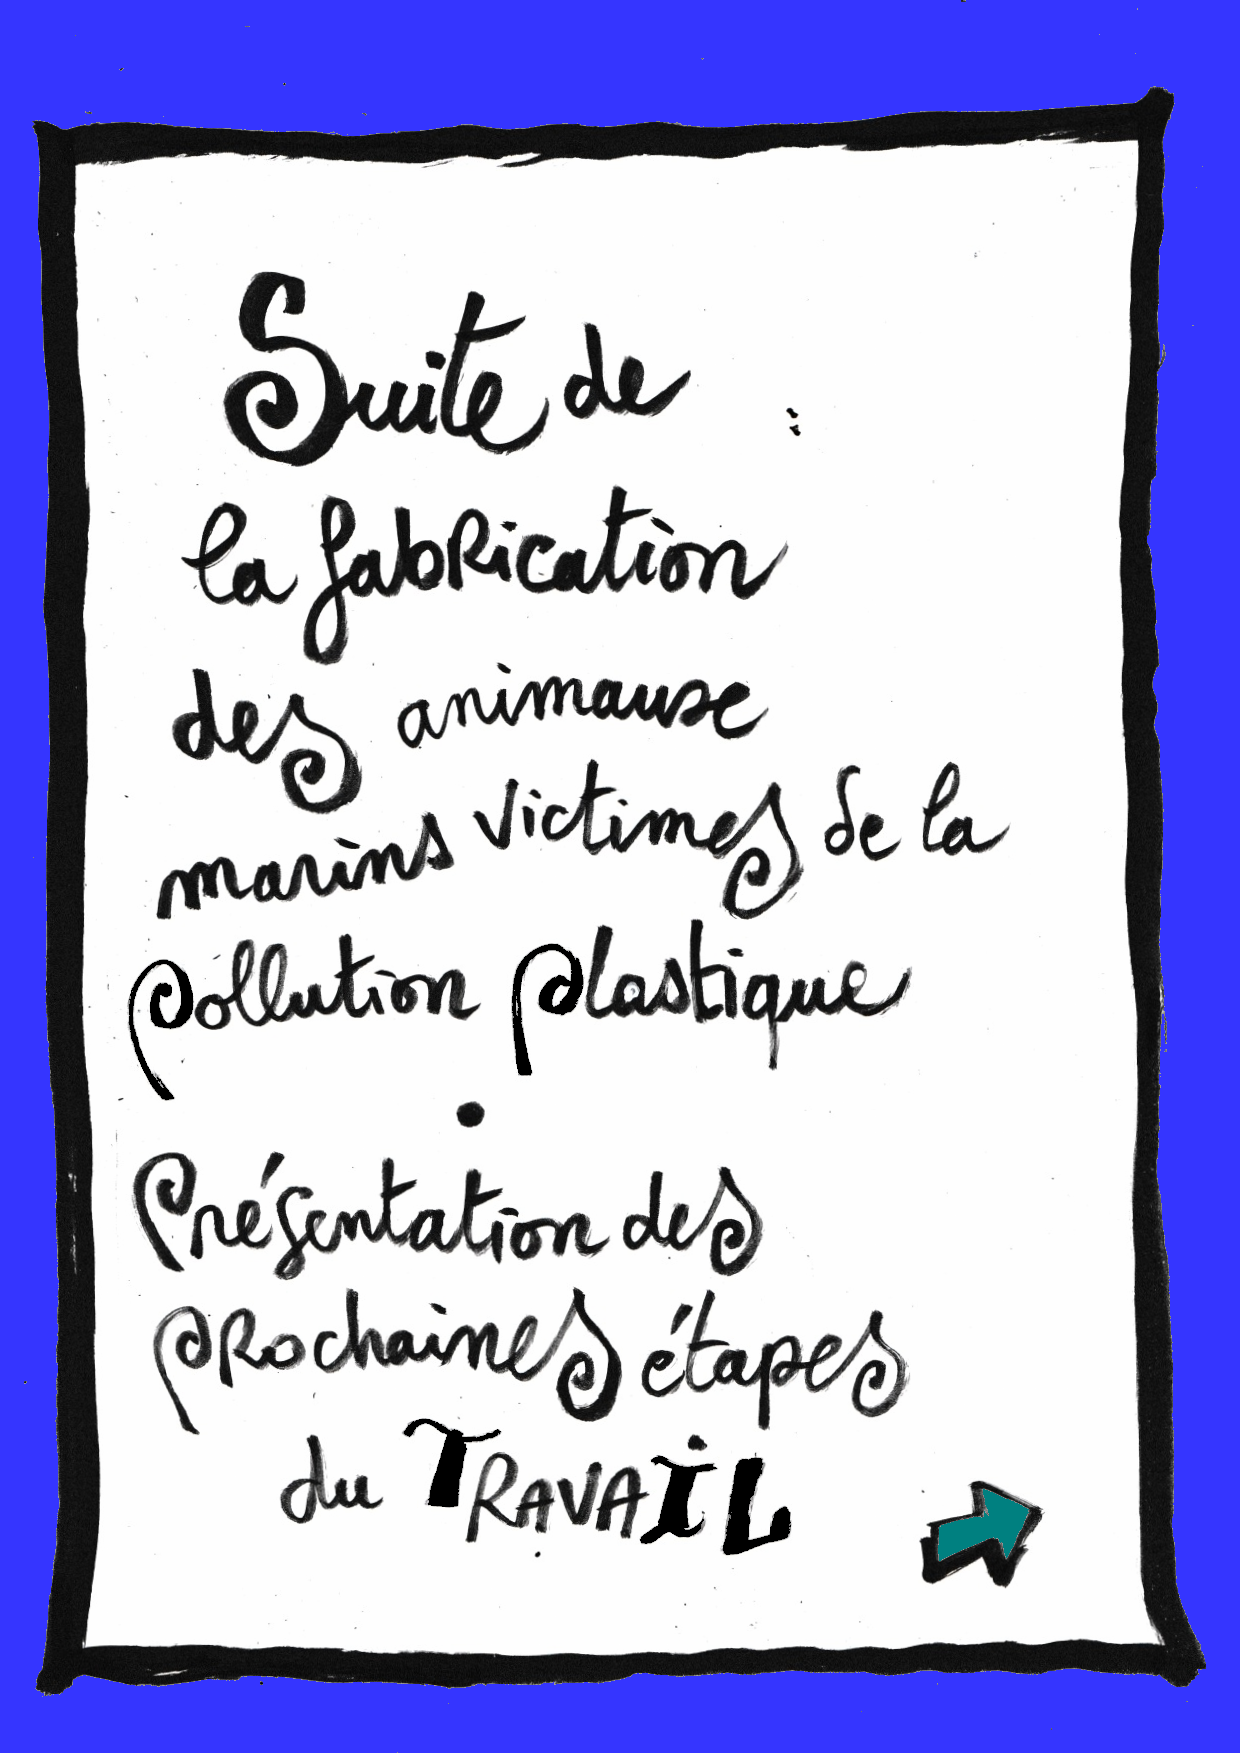 Suite de :
la fabrication
des animaux
marins victimes de la
pollution plastique
•
Présentation des
prochaines étapes
du TRAVAIL